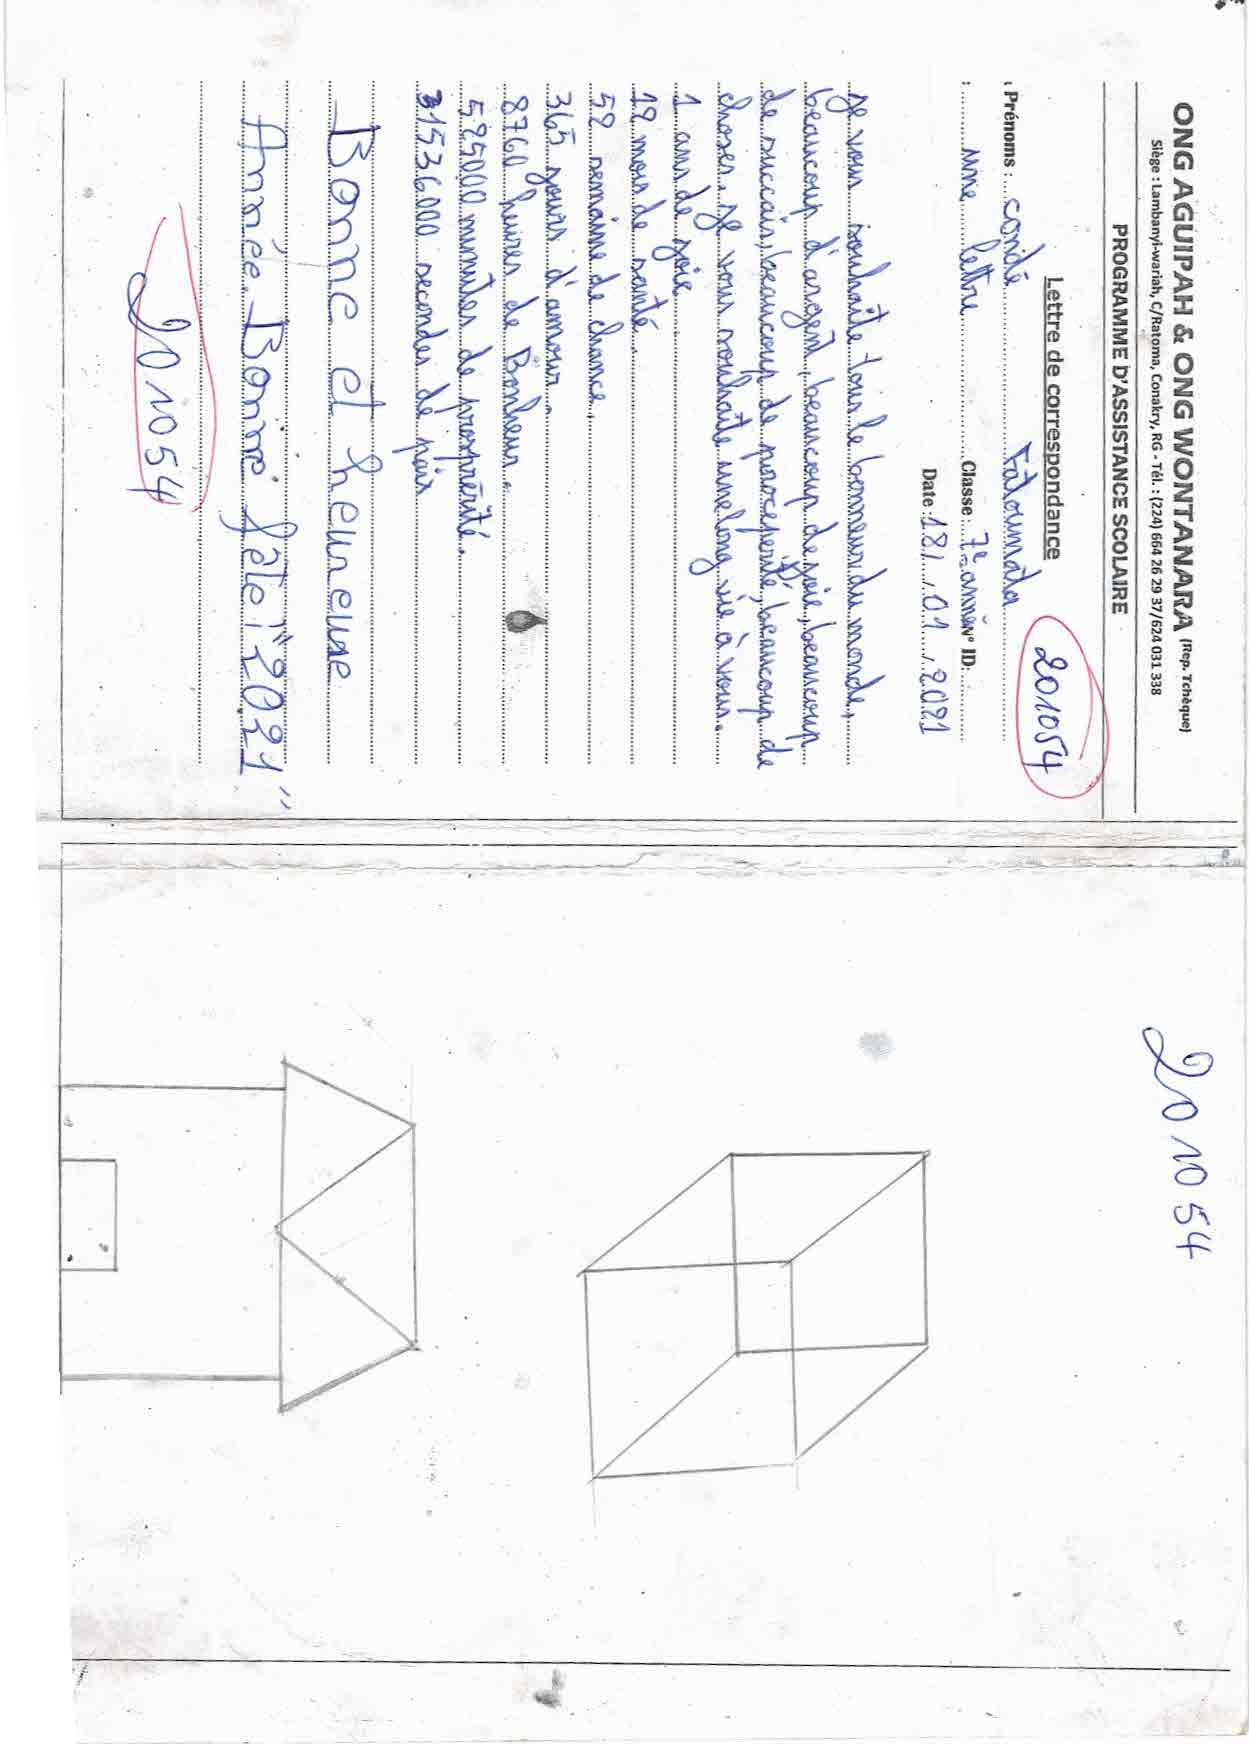 ONG AGUIPAH & ONG WONTANARA (Rep. Tchèque)
Siège : Lambanyi-wariah, C/Ratoma, Conakry, RG - Tél. : (224) 664 26 29 37/624 031 338
PROGRAMME D'ASSISTANCE SCOLAIRE
Lettre de correspondance
201054
Prénoms : condé Fatoumata
: une lettre Classe : 7e année N° ID:
Date : 18/.01./.2021
Je vous souhaite tous le bonneur du monde,
beaucoup d'argent, beaucoup de joie, beaucoup
de succais, beaucoup de beaucoup de
choses. Je vous souhaite une long vie à vous.
1 ans de joie
12 mois de santé.
52 semaine de chance.
365 jours d'amour.
8760 heures de Bonheur.
525000 minutes de
31536000 secondes de paix
Bonne et heureuse
Année. Bonne fête "2021"
201054
201054